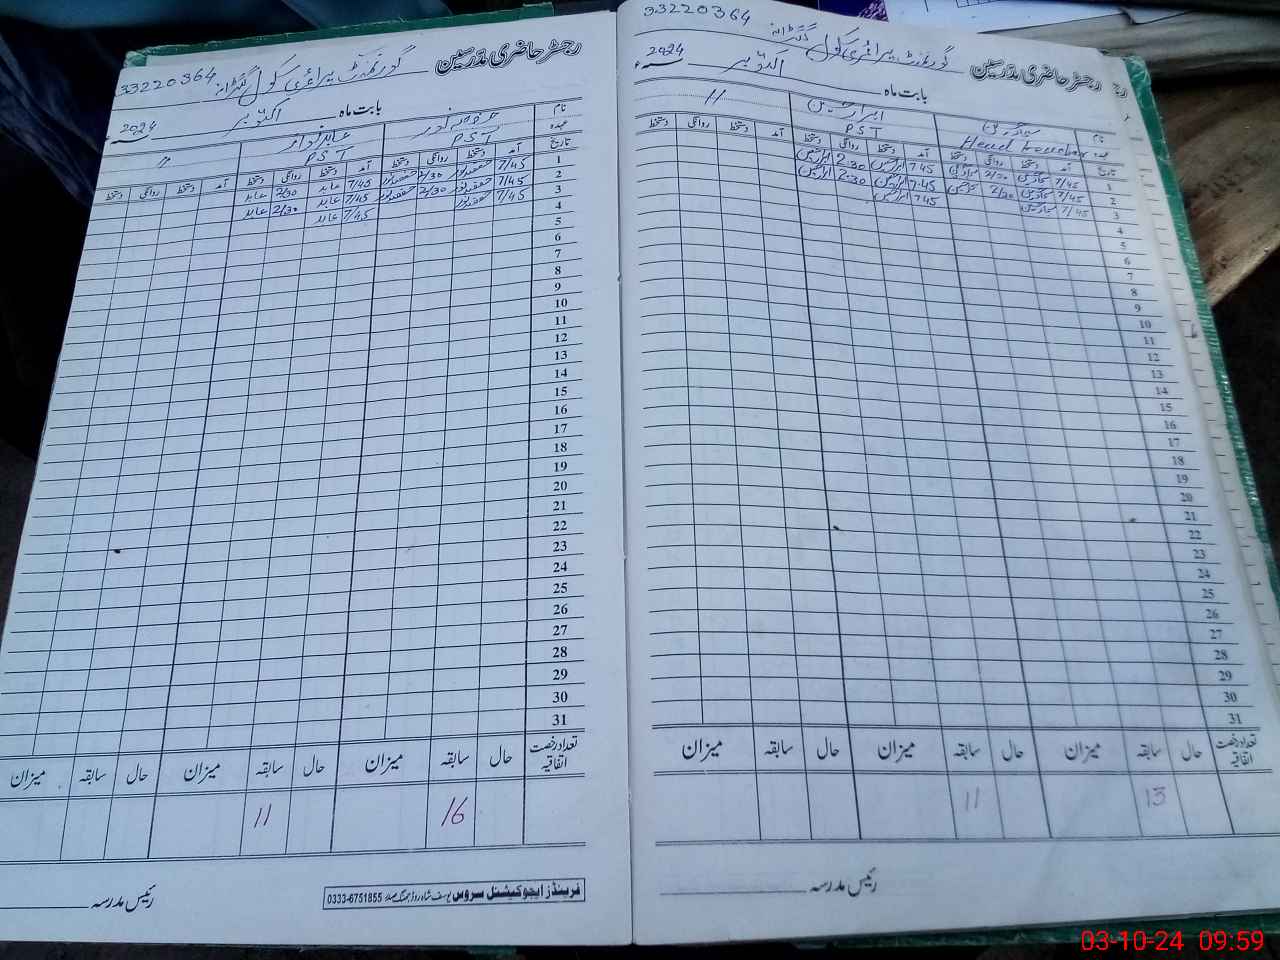 33220364
رجسٹر حاضری مدرسین گورنمنٹ پرائمری سکول
بابت ماہ اکتوبر 2024ء
نام
عہدہ Head teacher PST
تاریخ آمد دستخط روانگی دستخط آمد دستخط روانگی دستخط آمد دستخط روانگی دستخط
1 7/45 2/30 7 45 2:30
2 7/45 2/30 7:45 2:30
3 7/45 7 45
4
5
6
7
8
9
10
11
12
13
14
15
16
17
18
19
20
21
22
23
24
25
26
27
28
29
30
31
تعداد رخصت اتفاقیہ حال سابقہ میزان حال سابقہ میزان حال سابقہ میزان
13 11
رئیس مدرسہ
33220364
رجسٹر حاضری مدرسین گورنمنٹ پرائمری سکول
بابت ماہ اکتوبر 2024ء
نام
عہدہ PST PST
تاریخ آمد دستخط روانگی دستخط آمد دستخط روانگی دستخط آمد دستخط روانگی دستخط
1 7/45 2/30 7/45 عابد 2/30 عابد
2 7/45 2/30 7/45 عابد 2/30 عابد
3 7/45 7/45 عابد
4
5
6
7
8
9
10
11
12
13
14
15
16
17
18
19
20
21
22
23
24
25
26
27
28
29
30
31
تعداد رخصت اتفاقیہ حال سابقہ میزان حال سابقہ میزان حال سابقہ میزان
16 11
رئیس مدرسہ
فرینڈز ایجوکیشنل سروس یوسف شاہ روڈ جھنگ صدر 0333-6751855
03-10-24 09:59